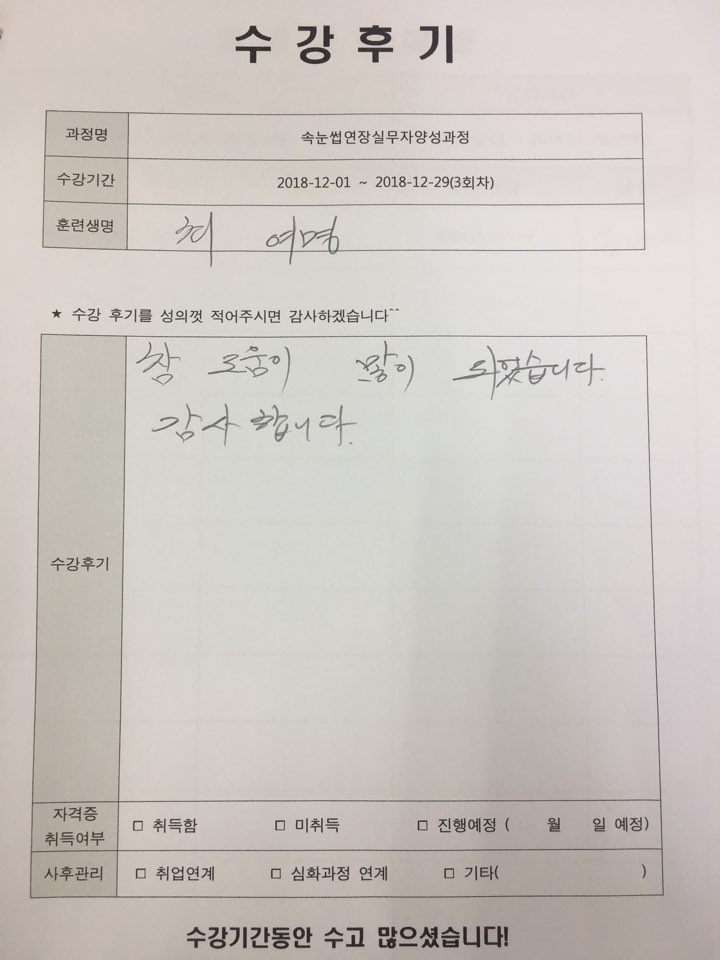 수강후기
과정명 속눈썹연장실무자양성과정
수강기간 2018-12-01 ~ 2018-12-29(3회차)
훈련생명 최 여명
★ 수강 후기를 성의껏 적어주시면 감사하겠습니다^^
참 도움이 많이 되었습니다.
감사 합니다.
수강후기
자격증
취득여부 □ 취득함 □ 미취득 □ 진행예정 ( 월 일 예정)
사후관리 □ 취업연계 □ 심화과정 연계 □ 기타( )
수강기간동안 수고 많으셨습니다!